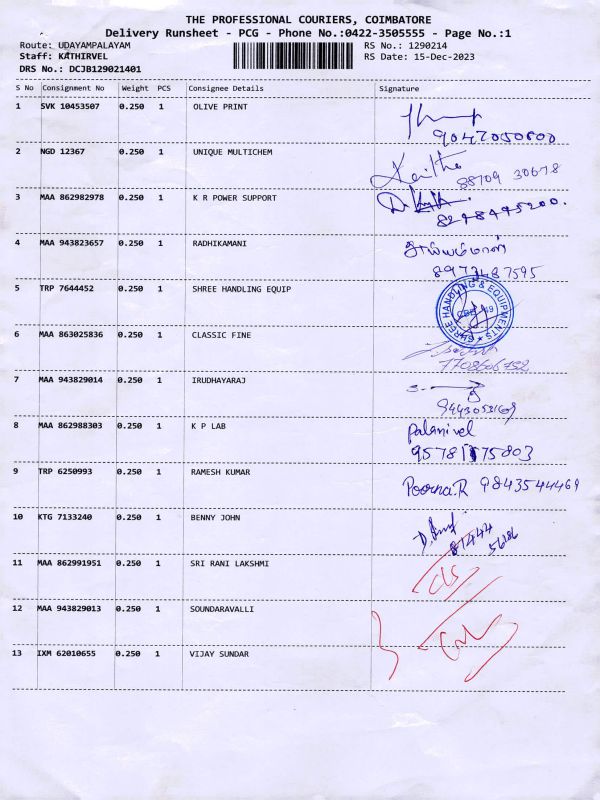 THE PROFESSIONAL COURIERS, COIMBATORE
Delivery Runsheet - PCG - Phone No.:0422-3505555 - Page No.:1
Route: UDAYAMPALAYAM RS No.: 1290214
Staff: KATHIRVEL RS Date: 15-Dec-2023
DRS No.: DCJB129021401
S No Consignment No Weight PCS Consignee Details Signature
1 SVK 10453507 0.250 1 OLIVE PRINT
2 NGD 12367 0.250 1 UNIQUE MULTICHEM
88709 30678
3 MAA 862982978 0.250 1 K R POWER SUPPORT
4 MAA 943823657 0.250 1 RADHIKAMANI
5 TRP 7644452 0.250 1 SHREE HANDLING EQUIP
SHREE HANDLING & EQUIPMENTS
6 MAA 863025836 0.250 1 CLASSIC FINE
7708606752
7 MAA 943829014 0.250 1 IRUDHAYARAJ
8 MAA 862988303 0.250 1 K P LAB
Palanivel
9 TRP 6250993 0.250 1 RAMESH KUMAR
Poorna.R 9843544469
10 KTG 7133240 0.250 1 BENNY JOHN
11 MAA 862991951 0.250 1 SRI RANI LAKSHMI
12 MAA 943829013 0.250 1 SOUNDARAVALLI
13 IXM 62010655 0.250 1 VIJAY SUNDAR